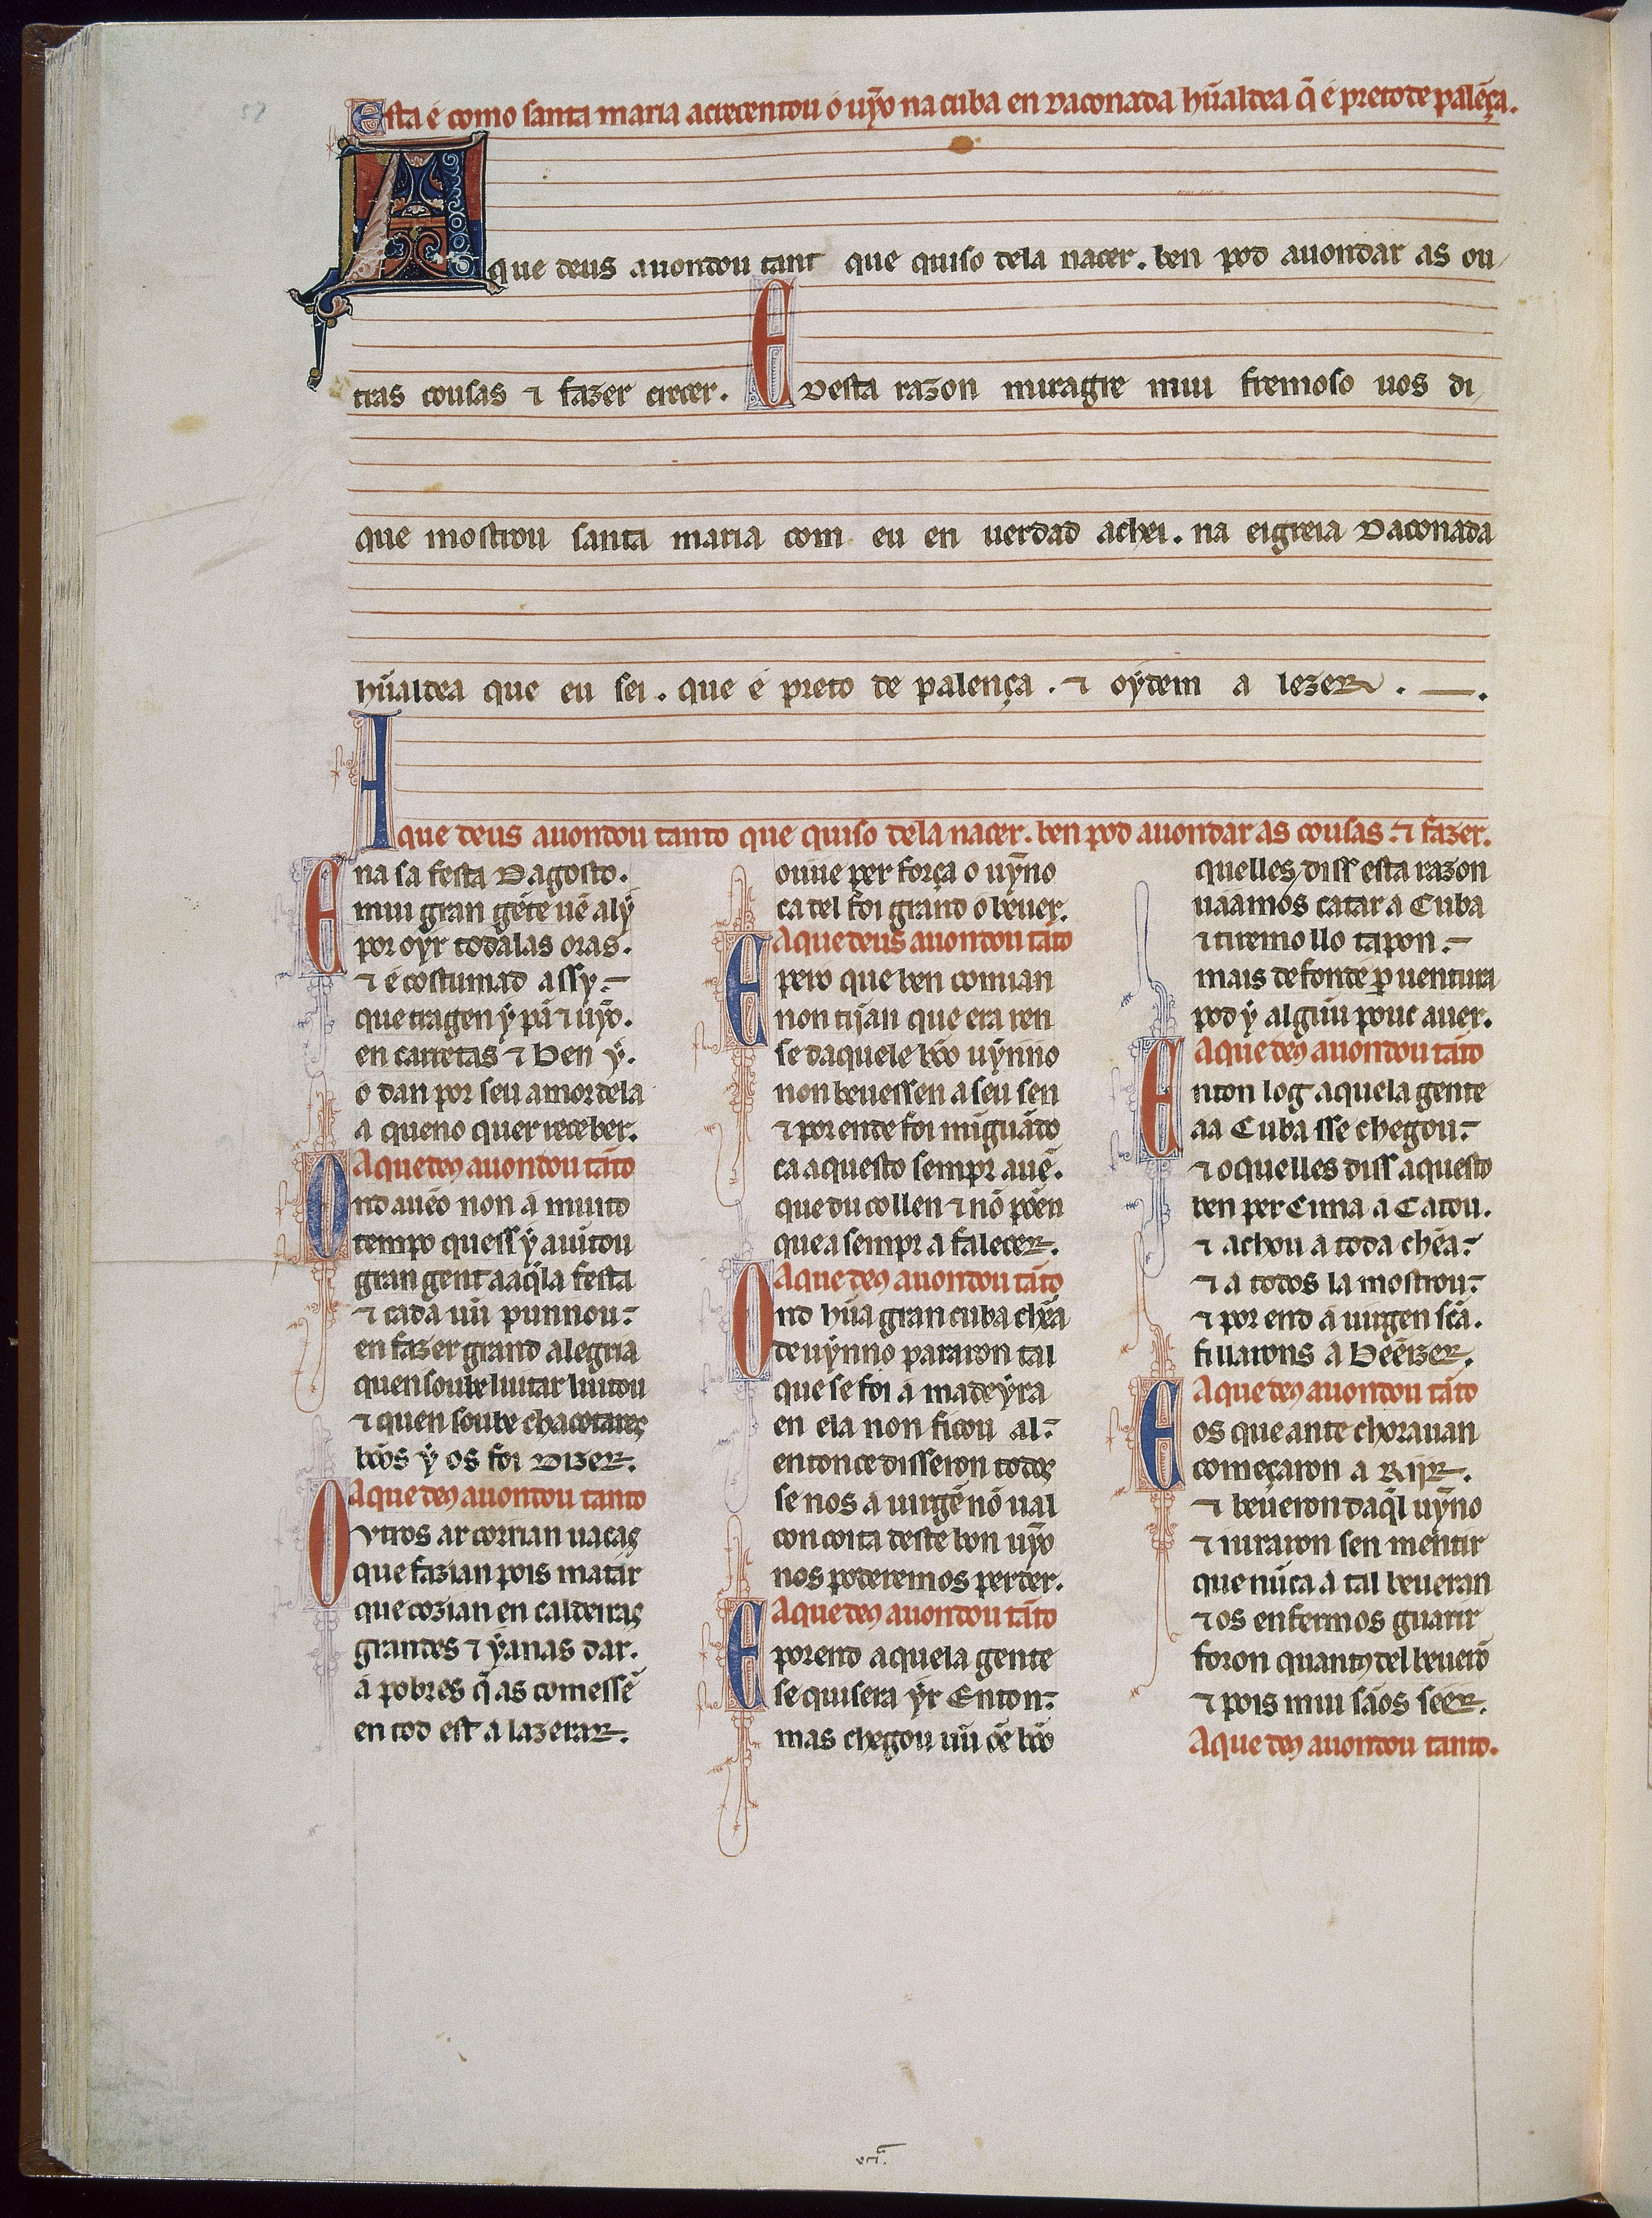 Esta é como santa maria acrecentou o uỹo na cuba en daconada hũaldea q̃ é preto de palẽça.
A que deus auondou tant que quiso dela nacer. ben pod auondar as ou
tras cousas ⁊ fazer crecer. E desta razon miragre mui fremoso uos di
que mostrou santa maria com eu en uerdad achei. na eigreia daconada
hũaldea que eu sei. que é preto de palença. ⁊ oydem a lezer.
A que deus auondou tanto que quiso dela nacer. ben pod auondar as cousas. ⁊ fazer.
Ena sa festa dagosto.
mui gran gẽte uẽ alỹ
por oyr todalas oras.
⁊ é costumad assy.
que tragen ỹ pã ⁊ uỹo.
en carretas ⁊ ben ỹ.
o dan por seu amor dela
a queno quer receber.
A que deꝰ auondou tãto
Ond auẽo non a muito
tempo quess ỹ auitou
gran gent aaq̃la festa
⁊ cada uũ punnou.
en fazer grand alegria
quen soube luitar luitou
⁊ quen soube chacotares
bõos ỹ os foi dizer.
A que deꝰ auondou tanto
Outros ar corrian uacas
que fazian pois matar
que cozian en caldeiras
grandes ⁊ ỹanas dar.
a pobres q̃ as comessẽ
en tod est a lazerar.
ouue per força o uỹno
ca tel foi grand o beuer.
A que deus auondou tãto
E pero que ben comian
non tijan que era ren
se daquele bõo uỹnno
non beuessen a seu sen
⁊ por ende foi mĩguãdo
ca aquesto sempr auẽ.
que du collen ⁊ nõ põen
que a sempr a falecer.
A que deꝰ auondou tãto
Ond hũa gran cuba chẽa
de uỹnno pararon tal
que se foi a madeỹra
en ela non ficou al.
entonce disseron todos
se nos a uirgẽ nõ ual
con coita deste bon uỹo
nos poderemos perder.
A que deꝰ auondou tãto
E porend aquela gente
se quisera ỹr enton.
mas chegou uũ om̃e bõo
quelles diss esta razon
uãamos catar a cuba
⁊ tiremo llo tapon.
mais de fonde ꝑ uentura
pod ỹ algũu pouc auer.
A que deꝰ auondou tãto
Enton log aquela gente
aa cuba sse chegou.
⁊ o quelles diss aquesto
ben per cima a catou.
⁊ achou a toda chẽa.
⁊ a todos la mostrou.
⁊ por end a uirgen sc̃a.
fillarons a bẽeizer.
A que deꝰ auondou tãto
E os que ante chorauan
começaron a rijr.
⁊ beueron daq̃l uỹno
⁊ iuraron sen mentir
que nũca a tal beueran
⁊ os enfermos guarir
foron quantꝰ del beuerõ
⁊ pois mui sãos seer.
A que deꝰ auondou tanto.